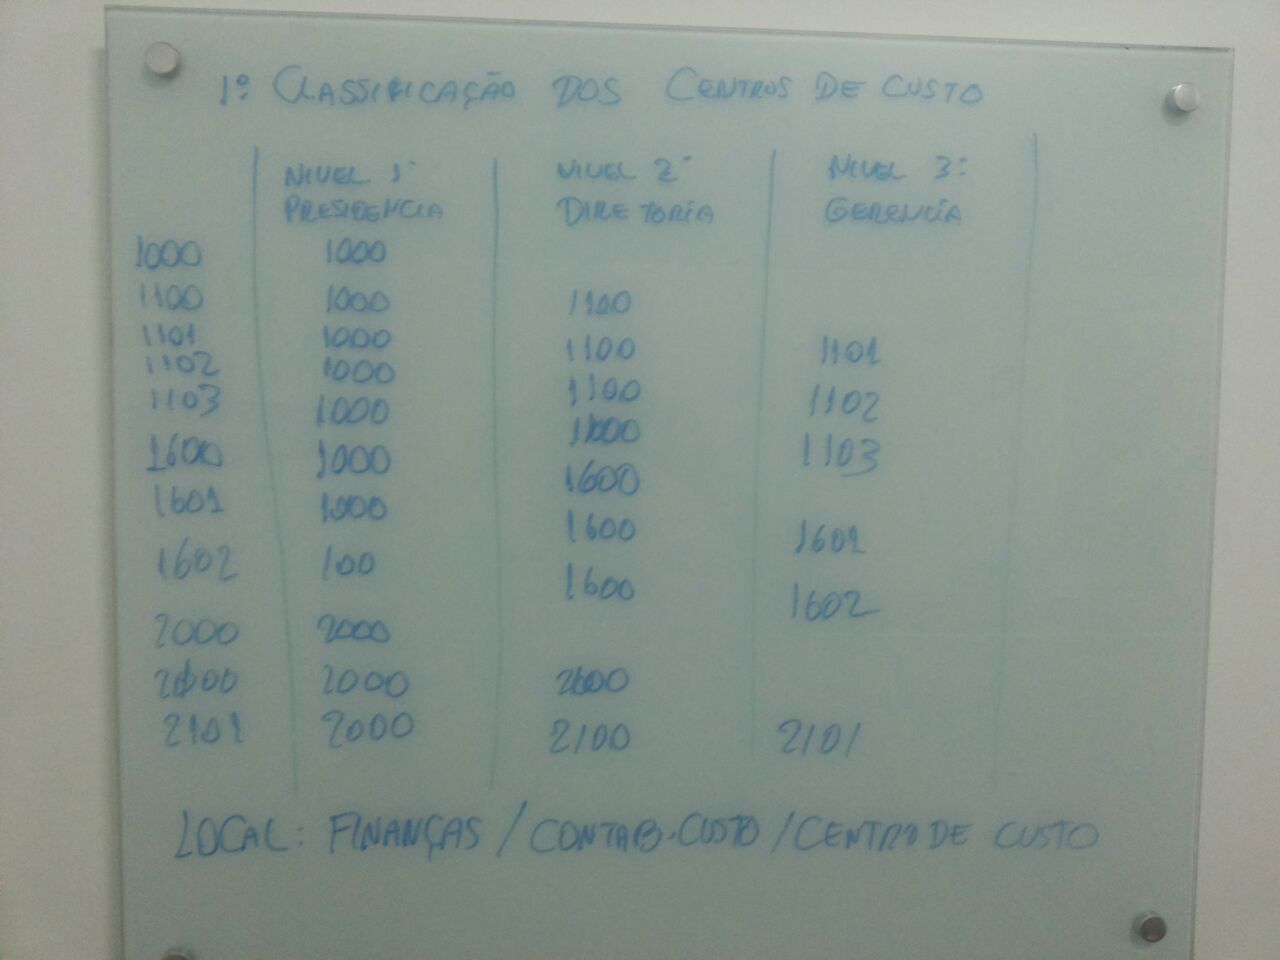 1º CLASSIFICAÇÃO DOS CENTROS DE CUSTO
NIVEL 1 NIVEL 2 NIVEL 3:
PRESIDENCIA DIRETORIA GERENCIA
1000 1000
1100 1000 1100
1101 1000 1100 1101
1102 1000 1100 1102
1103 1000 1103
1600 1000 1600
1601 1000 1600 1601
1602 100 1600 1602
2000 2000
2000
2101 2000 2100 2101
LOCAL: FINANÇAS / CONTAB-CUSTO / CENTRO DE CUSTO